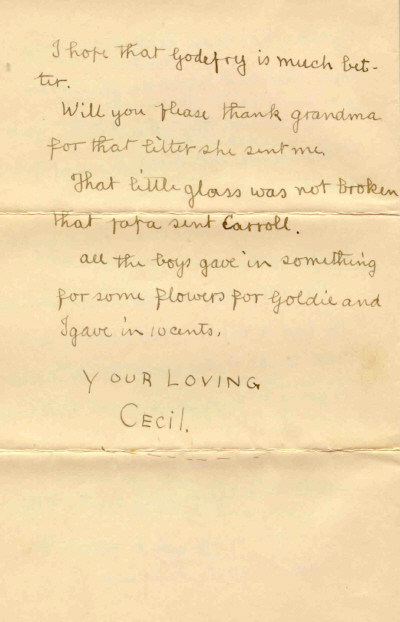 I hope that Godefry is much bet-
ter.
Will you please thank grandma
for that litter she sent me.
That little glass was not broken
that papa sent Carroll.
all the boys gave in something
for some flowers for Goldie and
I gave in 10 cents.
YOUR LOVING
CECIL.